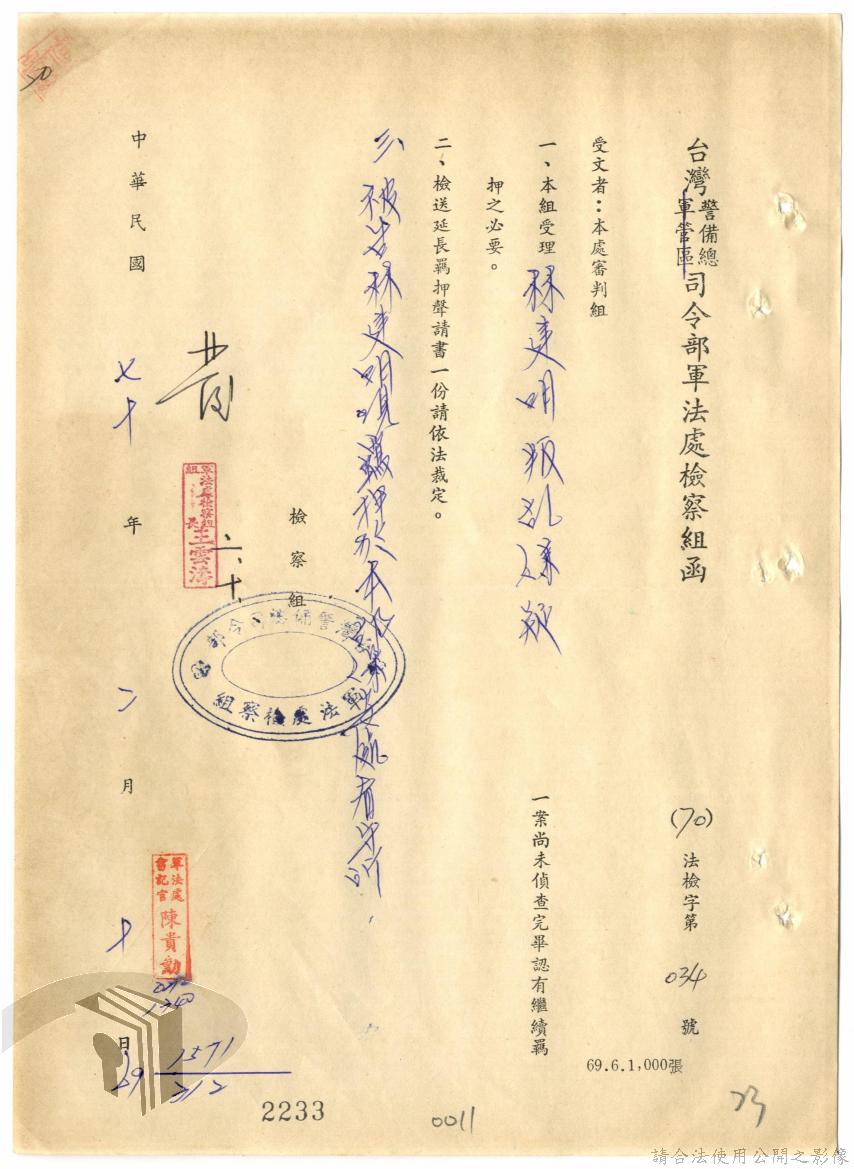 台灣警備總軍管區司令部軍法處檢察組函
(70) 法檢字第 034 號
受文者：本處審判組
一、本組受理林建明叛乱嫌疑一案尚未偵查完畢認有繼續羈
押之必要。
二、檢送延長羈押聲請書一份請依法裁定。
三、被告林建明現羈押於本部
檢察組
台灣警備總司令部
軍法處檢察組
軍法處檢察組組長 王雲濤
二、十、
中華民國七十年二月十日
軍法處書記官 陳貴勳
1571
212
69.6.1,000張
2233
0011
23
請合法使用公開之影像